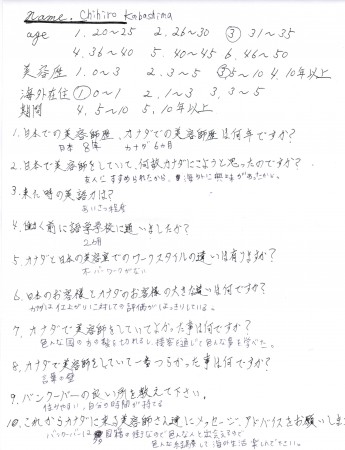 name. Chihiro Kabashima
age 1. 20~25 2. 26~30 ③ 31~35
4. 36~40 5. 40~45 6. 46~50
美容歴 1. 0~3 2. 3~5 ③ 5~10 4. 10年以上
海外在住 ① 0~1 2. 1~3 3. 3~5
期間 4. 5~10 5. 10年以上
1. 日本での美容師歴、カナダでの美容師歴は何年ですか?
日本 8年 カナダ 6ヶ月
2. 日本で美容師をしていて、何故カナダにこようと思ったのですか?
友人にすすめられたから、海外に興味があったから。
3. 来た時の英語力は?
あいさつ程度
4. 働く前に語学学校に通いましたか?
2ヶ月
5. カナダと日本の美容室でのワークスタイルの違いは有りますか?
オーバーワークがない
6. 日本のお客様とカナダのお客様の大きな違いは何ですか?
カナダは仕上がりに対しての評価がはっきりしている。
7. カナダで美容師をしていてよかった事は何ですか?
色んな国の方の髪を切れるし、接客を通じて色んな事を学べた。
8. カナダで美容師をしていて一番つらかった事は何ですか?
言葉の壁
9. バンクーバーの良い所を教えて下さい。
住みやすい、自分の時間が持てる
10. これからカナダに来る美容師さん達にメッセージ、アドバイスをお願いしま
バンクーバーは 色んな人と出会えますので
色んな経験して海外生活 楽しんで下さい。